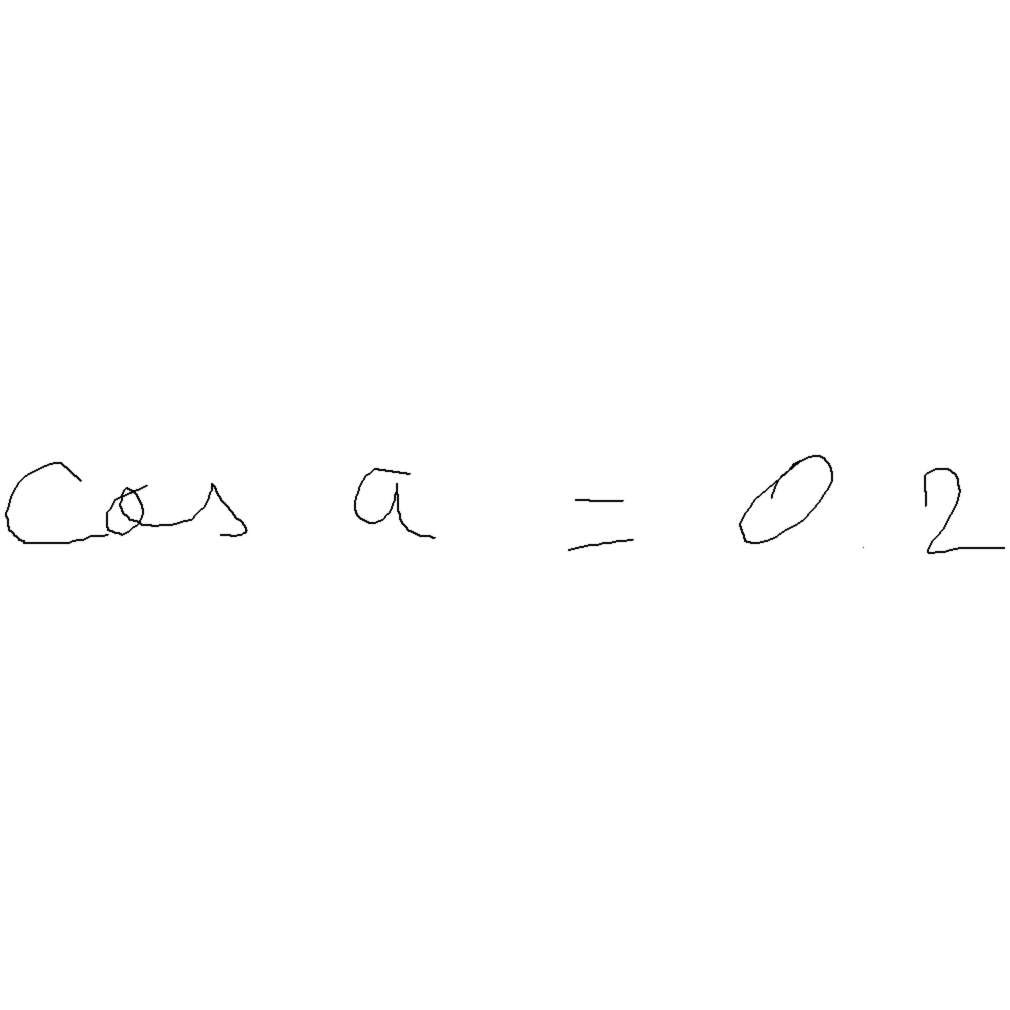 Cos a = 0.2